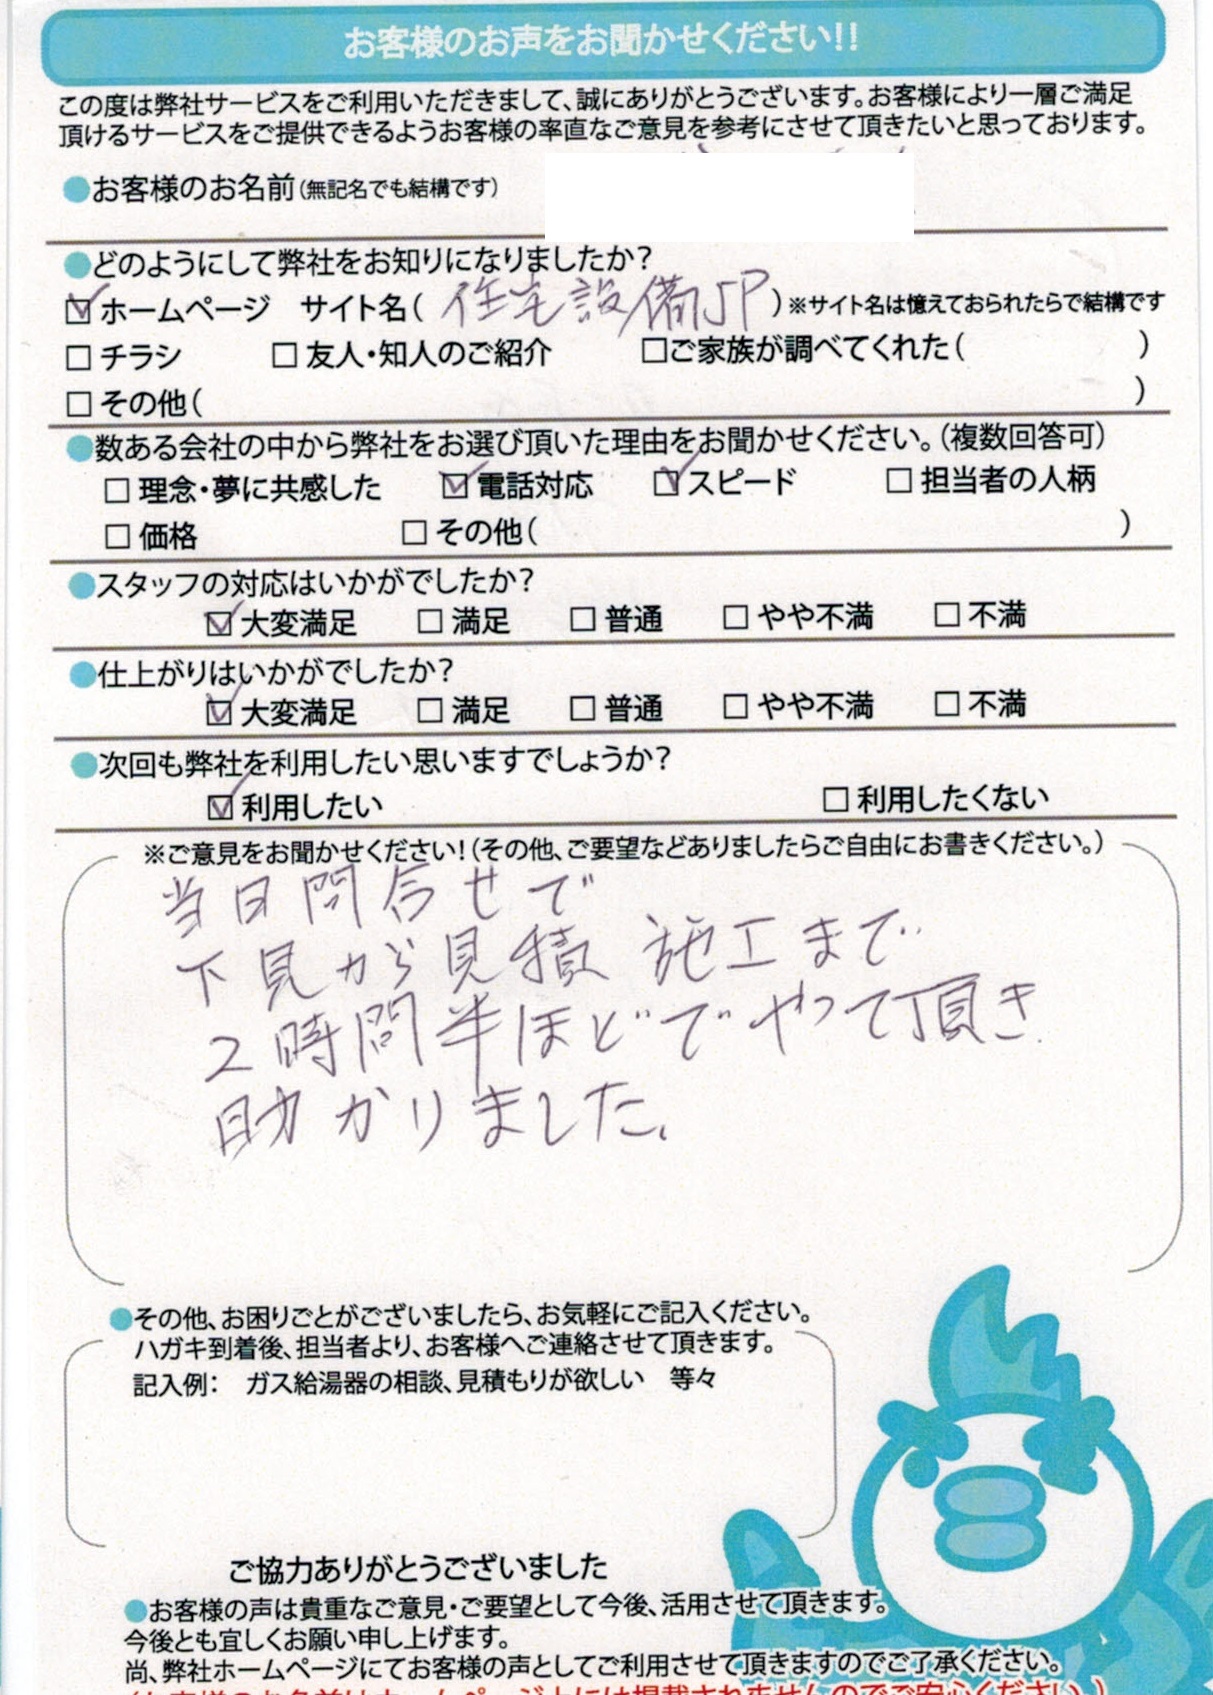 お客様のお声をお聞かせください!!
この度は弊社サービスをご利用いただきまして、誠にありがとうございます。お客様により一層ご満足
頂けるサービスをご提供できるようお客様の率直なご意見を参考にさせて頂きたいと思っております。
●お客様のお名前(無記名でも結構です)
●どのようにして弊社をお知りになりましたか?
☑ホームページ サイト名(住宅設備JP)※サイト名は憶えておられたらで結構です
□チラシ □友人・知人のご紹介 □ご家族が調べてくれた( )
□その他( )
●数ある会社の中から弊社をお選び頂いた理由をお聞かせください。(複数回答可)
□理念・夢に共感した ☑電話対応 ☑スピード □担当者の人柄
□価格 □その他( )
●スタッフの対応はいかがでしたか?
☑大変満足 □満足 □普通 □やや不満 □不満
●仕上がりはいかがでしたか?
☑大変満足 □満足 □普通 □やや不満 □不満
●次回も弊社を利用したい思いますでしょうか?
☑利用したい □利用したくない
※ご意見をお聞かせください!(その他、ご要望などありましたらご自由にお書きください。)
当日問合せで
下見から見積 施工まで
2時間半ほどでやって頂き
助かりました。
●その他、お困りごとがございましたら、お気軽にご記入ください。
ハガキ到着後、担当者より、お客様へご連絡させて頂きます。
記入例: ガス給湯器の相談、見積もりが欲しい 等々
ご協力ありがとうございました
●お客様の声は貴重なご意見・ご要望として今後、活用させて頂きます。
今後とも宜しくお願い申し上げます。
尚、弊社ホームページにてお客様の声としてご利用させて頂きますのでご了承ください。
(お客様のお名前はホームページ上には掲載されませんのでご安心ください。)